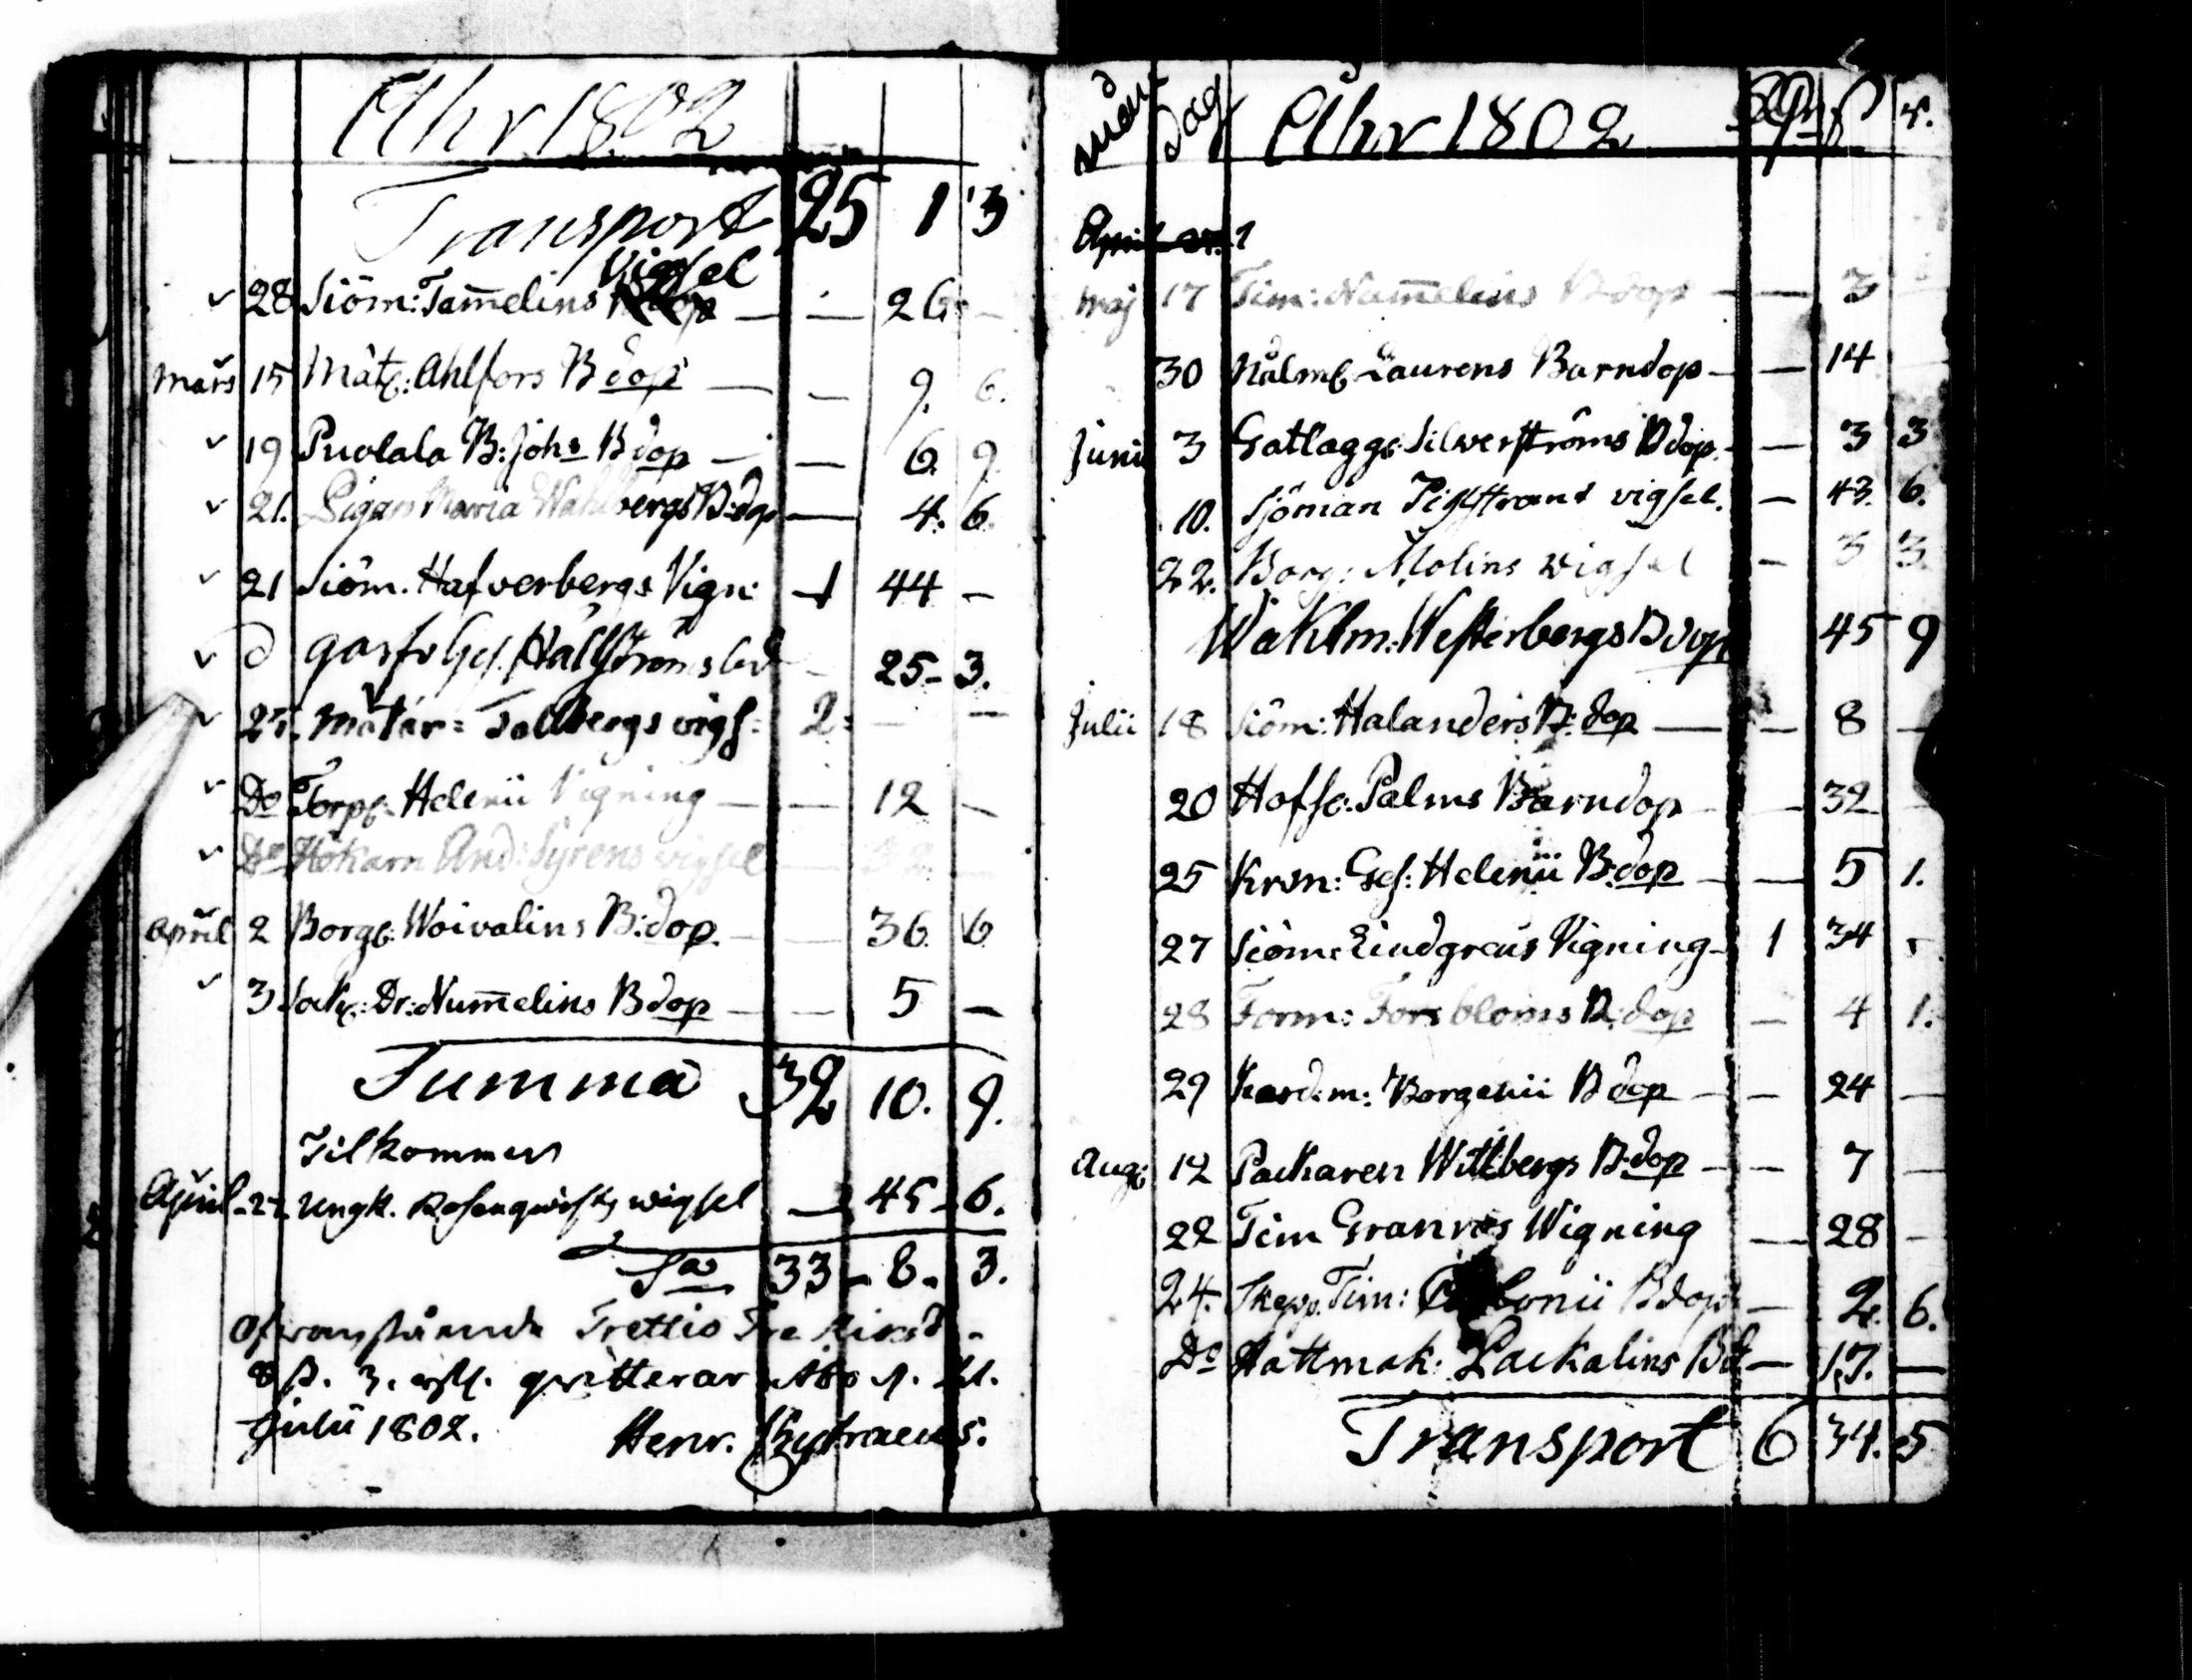 Åhr 1802
Transport 25 1 3
28 Siöm: Tam̄elins Vigsel — 26 -
Mars 15 Mät: Ahlfors B dop — 9. 6.
19 Puolala B: Johs B dop — 6. 9.
21. Pigan Maria Wahlbergs B:dop — 4. 6
21 Siöm. Hafverbergs Vign: 1 44 -
d Hällströms 25 - 3.
27. Mätar: Tallbergs vigs: 2: — —
Do Torp: Helenii Vigning — 12 —
Do Hökarn And: Syrens vigsel — 32 —
April 2 Borg: Woivalins B:dop. — 36. 6
3 Dr: Num̄elins B dop — 5 —
Summa 32 10. 9.
Tilkommer
April 27 Ungk. Rosenqwists wigsel — 45 - 6.
Sa 33 - 8. 3.
Ofvanstående Trettio Tre Riksd.
8 s. 3. qvitterar Åbo d.
Julii 1802. Henr.
Mån Dag Åhr 1802 s r.
April
Maj 17 Tim: Num̄elins B dop — 3
30 Laurens Barndop — 14
Junii 3 Gatlägg: Silwerströms B dop. — 3 3
10. Sjöman vigsel. — 43. 6.
22. Borg: Molins wigsel — 3 3.
Waktm: Westerbergs B dop 45 9
Julii 18 Siöm: Halanders B: dop — 8 —
20 Hofs: Palms Barndop — 32
25 Kron: Ges: Helenii B:dop — 5 1.
27 Siöm: Lindgrens Vigning 1 34
28 Form: Forsbloms B: dop — 4 1.
29 Kardm: Borgenii B dop — 24 —
Aug: 12 Packaren Wittbergs B:dop — 7 —
22 Tim Granroos Wigning — 28 -
24. Skepp. Tim: B dop — 2. 6.
Do Hattmak: Lackalins Bd — 17. —
Transport 6 34. 5